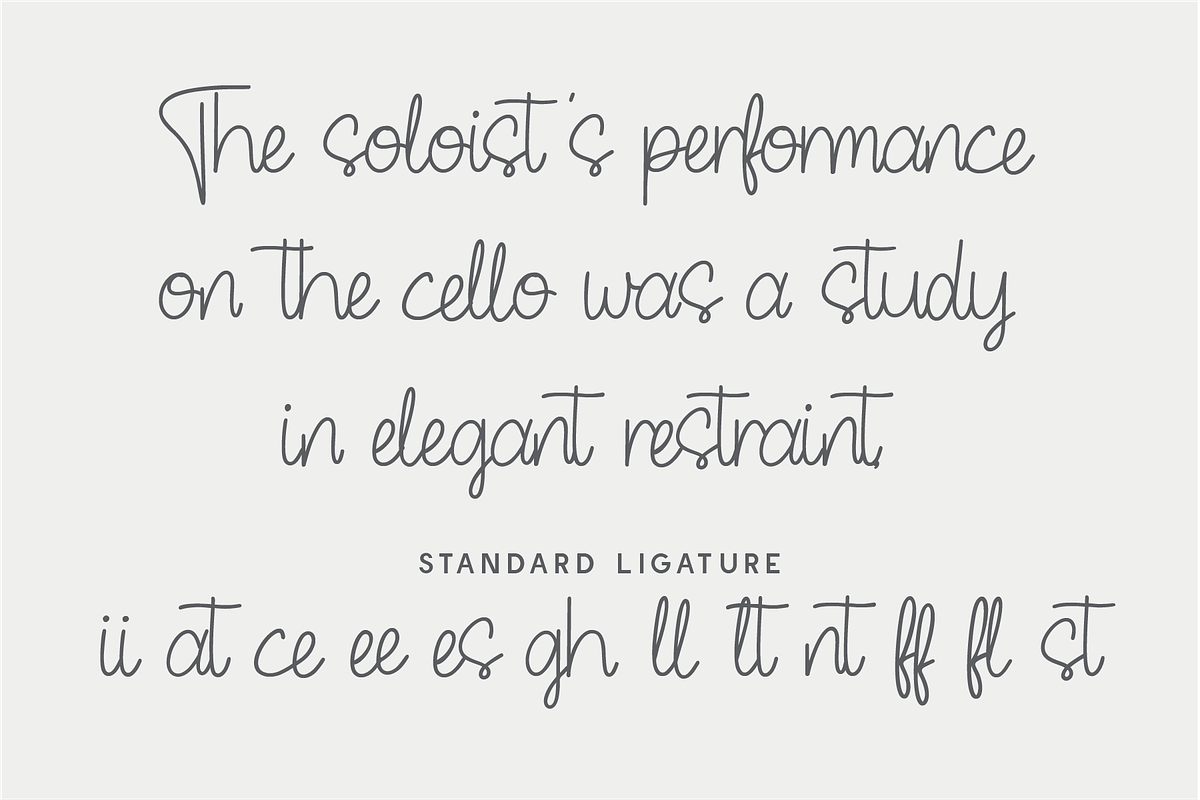 The soloist's performance
on the cello was a study
in elegant restraint.
STANDARD LIGATURE
ii at ce ee es gh ll tt nt ff fl st